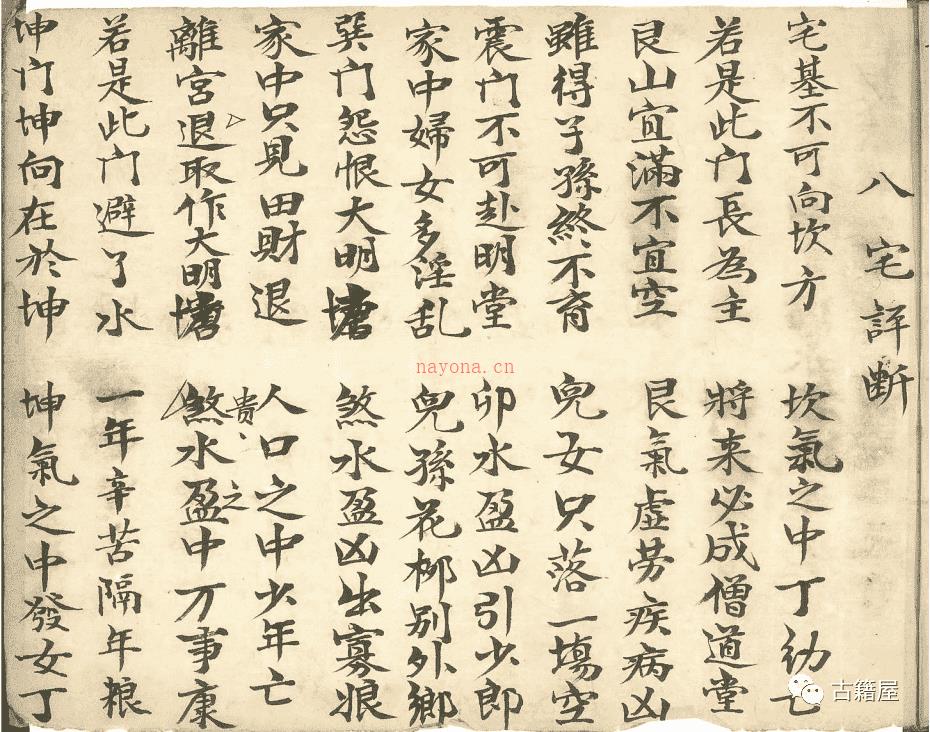 八宅評断
宅基不可向坎方 坎氣之中丁幼亡
若是此门長為主 將来必成僧道堂
艮山宜滿不宜空 艮氣虛劳疾病凶
雖得子孫終不育 兒女只落一塲空
震门不可赴明堂 卯水盈凶引少郎
家中婦女多淫乱 兒孫花柳别外鄉
巽门怨恨大明塘 煞水盈凶出寡娘
家中只見田財退 人口之中少年亡
離宮退取作大明塘 煞貴水盈之中万事康
若是此门避了水 一年辛苦隔年粮
坤门坤向在於坤 坤氣之中發女丁
nayona.cn
古籍屋